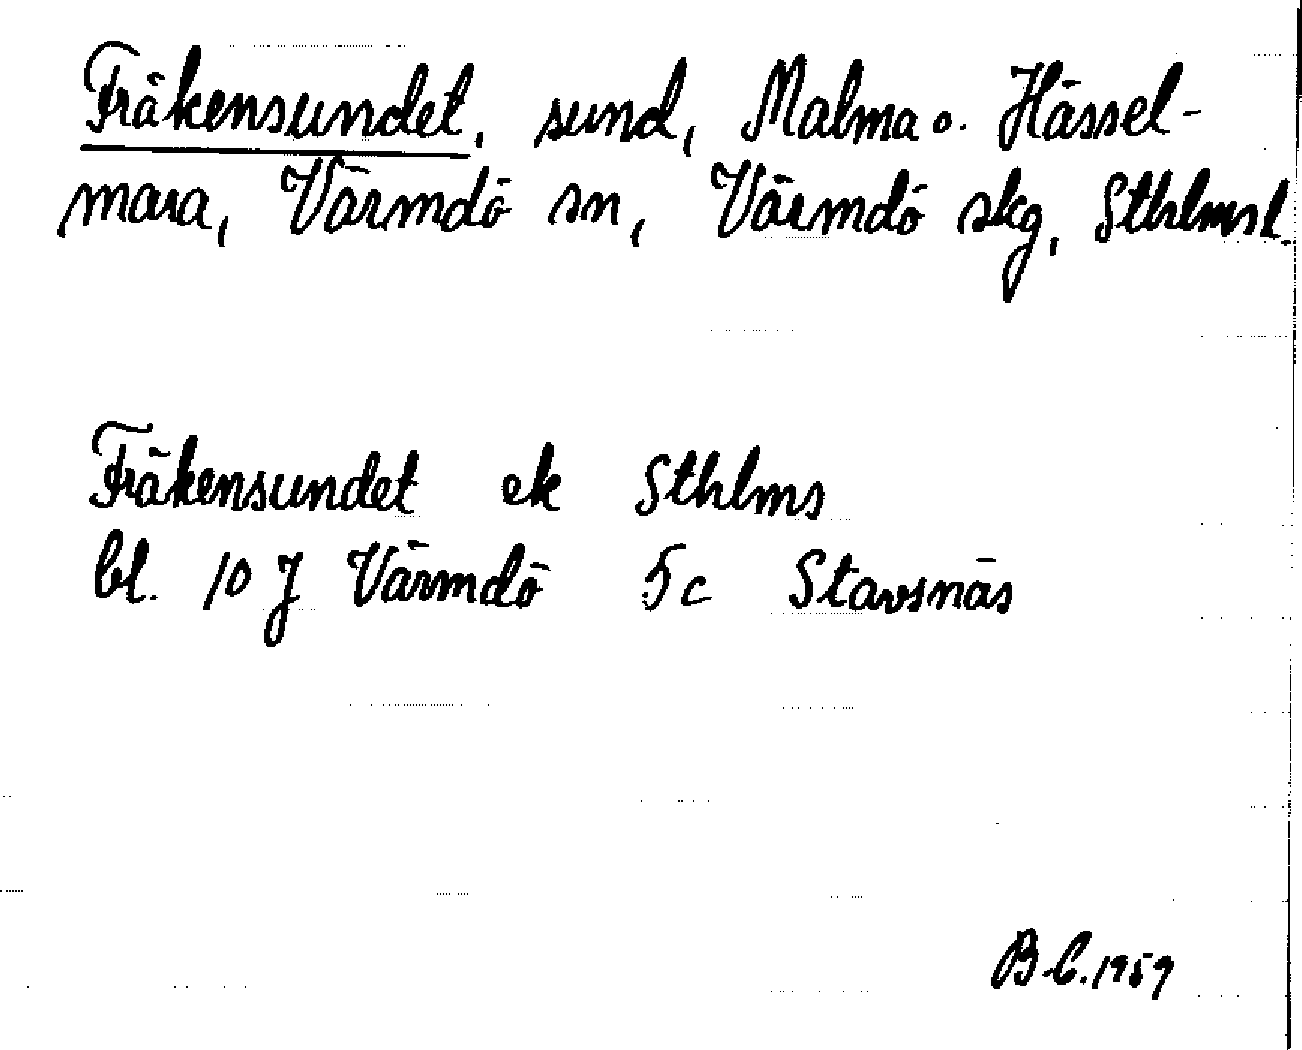 Fräkensundet, sund, Malma o. Hässel-
mara, Värmdö sn, Värmdö skg, Sthlmsl.
Fräkensundet ek Sthlms
bl. 10 J Värmdö 5c Stavsnäs
B-C. 1959